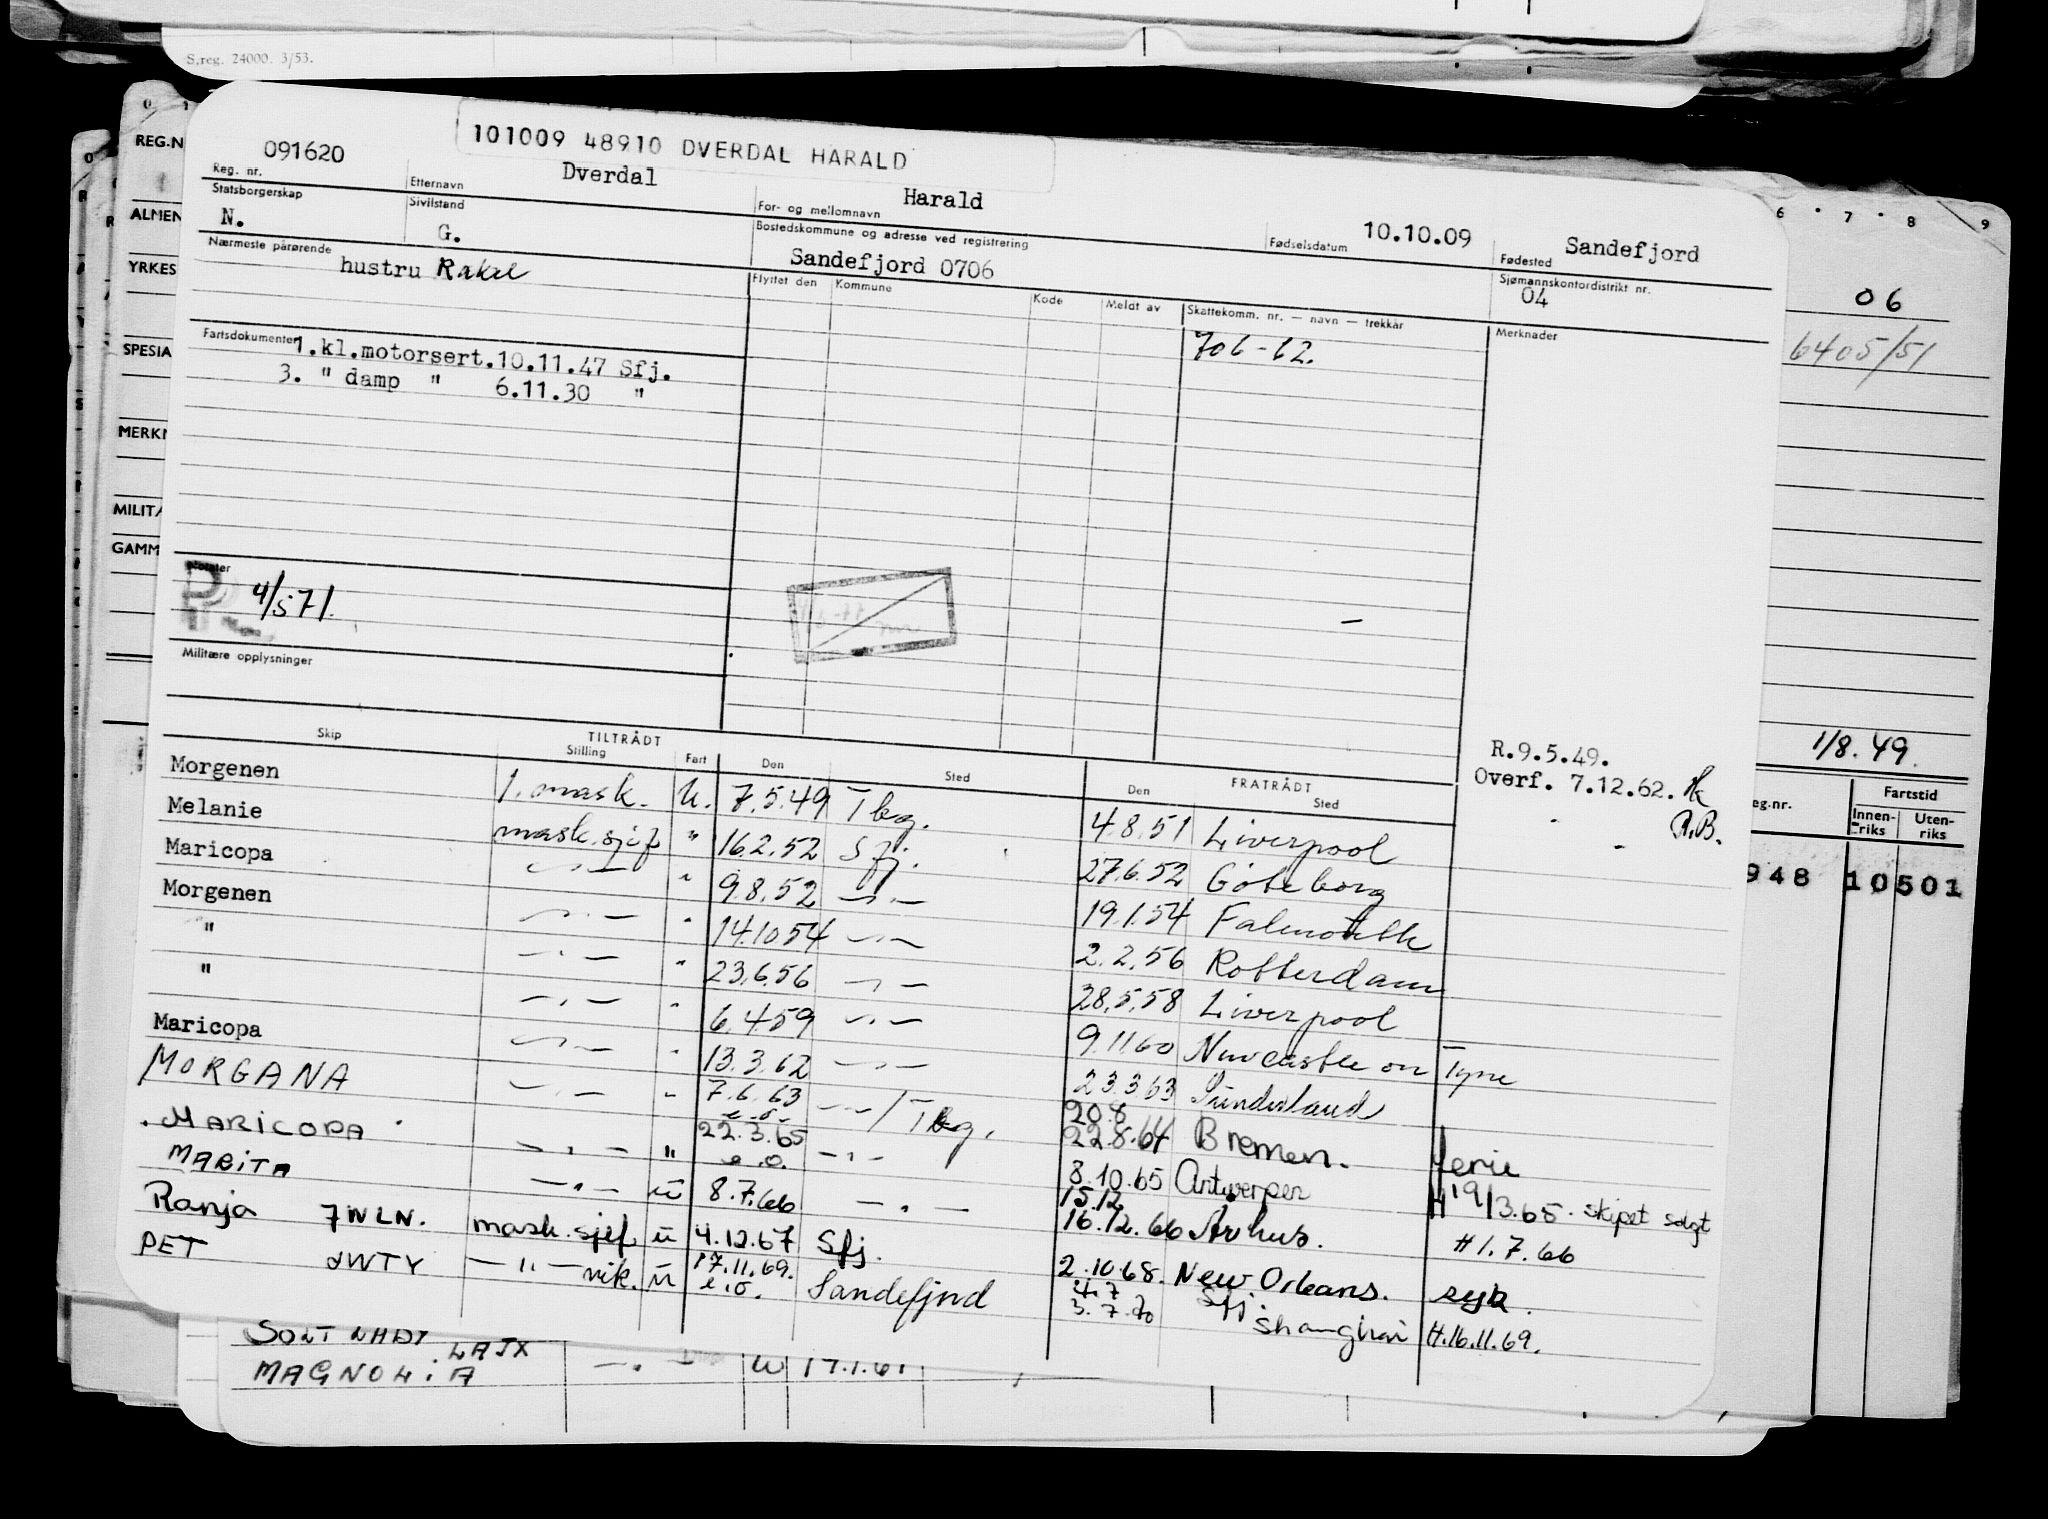 S.reg. 24000. 3/53.
101009 48910 DVERDAL HARALD
091620 Dverdal Harald 10.10.09 Sandefjord
Reg. nr. Etternavn For- og mellomnavn Fødselsdatum Fødested
Statsborgerskap Sivilstand Bostedskommune og adresse ved registrering Sjømannskontordistrikt nr.
N. G. Sandefjord 0706 04
Nærmeste pårørende Flyttet den Kommune Kode Meldt av Skattekomm. nr. — navn — trekkår Merknader
hustru Rakel
706-62.
Fartsdokumenter
1.kl.motorsert.10.11.47 Sfj.
3. " damp " 6.11.30 "
4/5 71.
Militære opplysninger
R.9.5.49.
Overf. 7.12.62.
A.B.
Skip TILTRÅDT Stilling Fart Den Sted FRATRÅDT Den Sted
Morgenen 1. mask. U. 7.5.49 Tbg. 4.8.51 Liverpool
Melanie mask.sjef " 16.2.52 Sfj. 27.6.52 Göteborg
Maricopa —"— " 9.8.52 —"— 19.1.54 Falmouth
Morgenen —"— " 14.10.54 —"— 2.2.56 Rotterdam
" —"— " 23.6.56 —"— 28.5.58 Liverpool
" —"— " 6.4.59 —"— 9.11.60 Newcastle on Tyne
Maricopa —"— " 13.3.62 —"— 23.3.63 Sunderland
MORGANA —"— " 7.6.63 e.o. —"— / Tbg. 20.8 22.8.64 Bremen. ferie
MARICOPA —"— " 22.3.65 e.o. —"— 8.10.65 Antwerpen H 19/3.65. skipet solgt
MARITA —"— u 8.7.66 —"— 15.12 16.12.66 Århus. H 1.7.66
Ranja JWLN. mask.sjef u 4.12.67 Sfj. 2.10.68. New Orleans. syk.
PET JWTY —"— vik. u 17.11.69. e.o. Sandefjord 4.7 3.7.70 Sfj. Shanghai H.16.11.69.
SOLT LADY LAJX
MAGNOLIA —"— U 17.1.61
0 1
REG.N
ALMEN
YRKES
SPESIA
MERKN
MILITÆ
GAMM
6 7 8 9
06
6405/51
1/8.49.
eg.nr. Fartstid
Innenriks Utenriks
948 10501